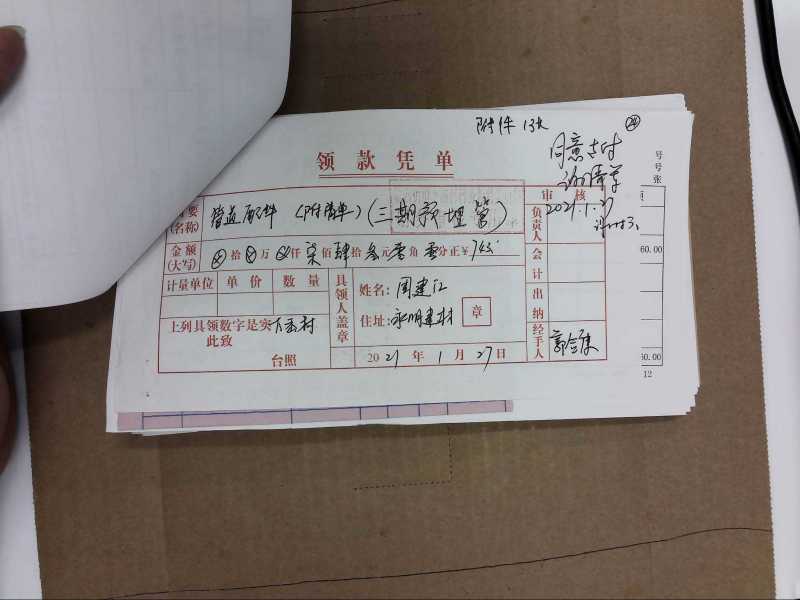 附件 13张
24
领款凭单
同意支付
2021.1.27
号
号
张
要
(名称)
管道配件 (附清单) (三期预埋管)
审核
金额
(大写)
⊗拾⊗万⊗仟柒佰肆拾叁元零角零分正¥743
60.00
负责人
会计
出纳
经手人
计量单位 单价 数量
具领人盖章
姓名: 周建江
住址: 永明建材
章
上列具领数字是实
此致
台照
2021年1月27日
60.00
12